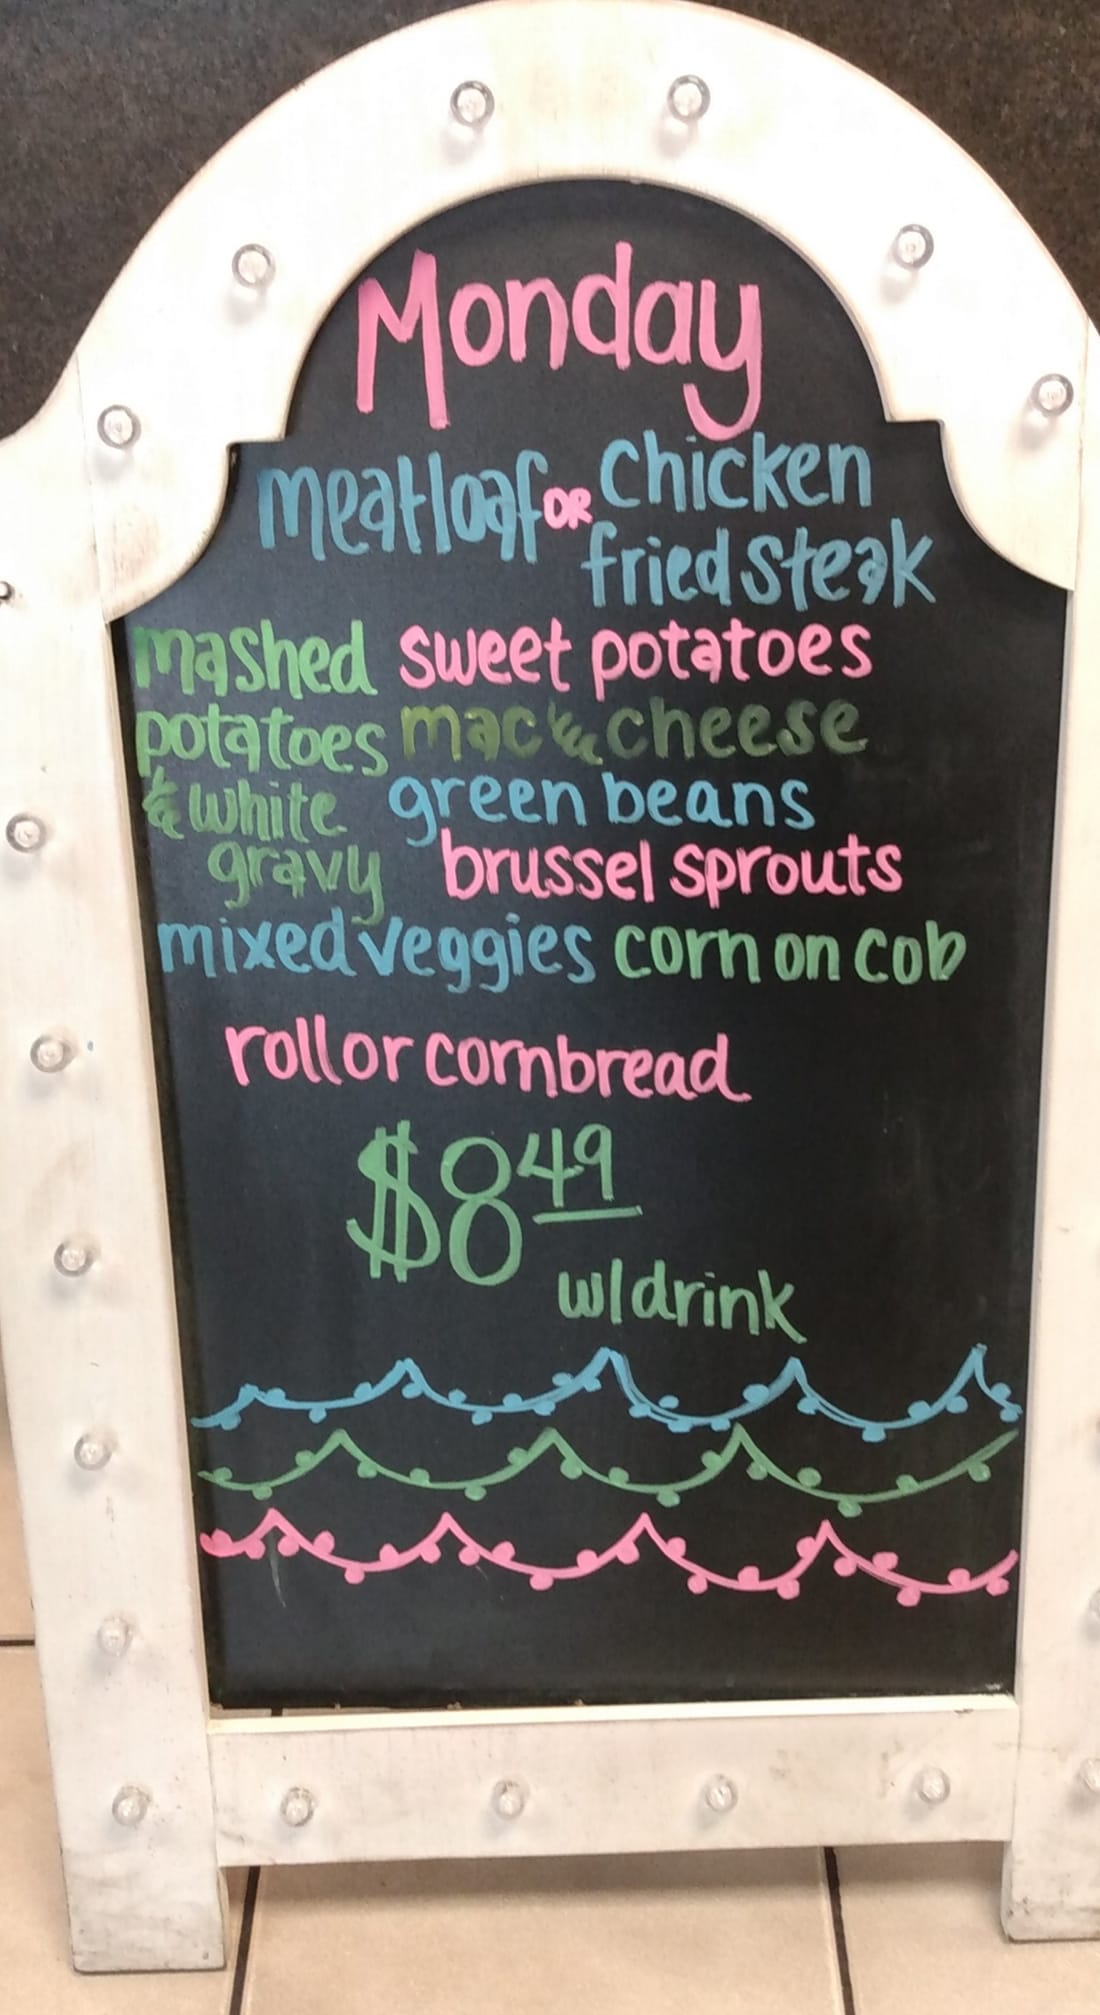 Monday
meatloaf OR Chicken
fried steak
mashed sweet potatoes
potatoes mac & cheese
& white green beans
gravy brussel sprouts
mixed veggies corn on cob
roll or cornbread
$8 49
w/drink